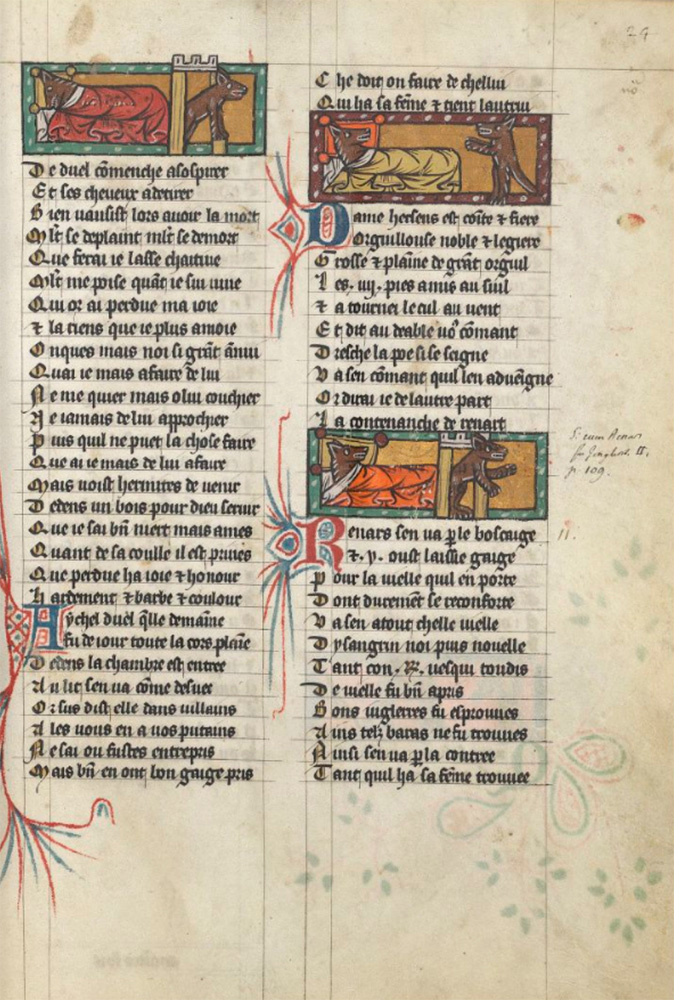 29
De duel cõmenche a sospirer
Et ses cheveux a detirer
Bien vausist lors avoir la mort
Ml̃t se deplaint ml̃t se demort
Que ferai ie lasse chaitive
Ml̃t me poise quãt ie sui vive
Qui or ai perdue ma ioie
⁊ la riens que ie plus amoie
Onques mais noi si grãt ãnui
Quai ie mais a faire de lui
Ne me quier mais o lui couchier
Ne iamais de lui approchier
Puis quil ne puet la chose faire
Que ai ie mais de lui a faire
Mais voist hermites devenir
Dedens un bois pour dieu servir
Que ie sai bñ niert mais ames
Quant de sa coulle il est privés
Que perdue ha ioie ⁊ honour
Hardement ⁊ barbe ⁊ coulour
A ychel duel q̃lle demaine
fu de iour toute la cors plaine
Dedens la chambre est entree
Au lit sen va cõme desvee
Or sus dist elle dans villains
Ales vous en a vos putains
Ne sai ou fustes entrepris
Mais bñ en ont bon gaige pris
Che doit on faire de chellui
Qui ha sa fẽme ⁊ tient lautrui
Dame hersens est cointe ⁊ fiere
Dorguillouse noble ⁊ legiere
Grosse ⁊ plaine de grãt orguil
Les .iiij. pies a mis au suil
⁊ a tourne le cul au vent
Et dit au deable vo9 cõmant
Dresche la poe si se seigne
Va sen cõmant quil len aduãgne
Or dirai ie de lautre part
La contenanche de renart
Renars sen va p̱ le boscaige
⁊ .y. oust laissie gaige
Pour la vielle quil en porte
Dont durement se reconforte
Va sen atout chelle vielle
Dysangrin noi puis nouelle
Tant con
De vielle fu bñ apris
Bons iuglerres fu esprouves
Ains telz baras ne fu trouves
Ainsi sen va p̱ la contree
Tant quil ha sa fẽme trouvee
11.
p. 109.